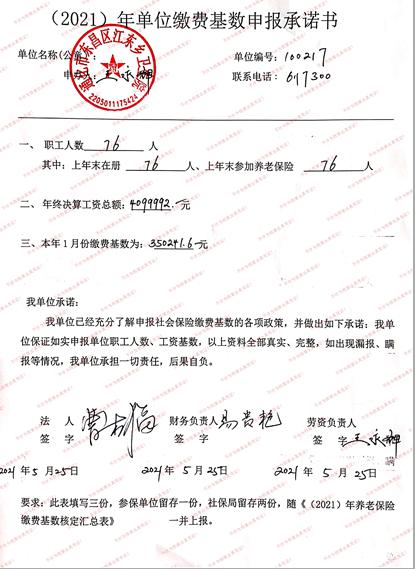 （2021）年单位缴费基数申报承诺书
单位名称(公章) 单位编号: 100217
通化市东昌区江东乡卫生院
2205011175424
申办人 王 联系电话: 617300
一、 职工人数 76 人
其中: 上年末在册 76 人、上年末参加养老保险 76 人
二、年终决算工资总额: 4099992. 元
三、本年1月份缴费基数为: 350241.6 元
我单位承诺:
我单位已经充分了解申报社会保险缴费基数的各项政策，并做出如下承诺: 我单
位保证如实申报单位职工人数、工资基数，以上资料全部真实、完整，如出现漏报、瞒
报等情况，我单位承担一切责任，后果自负。
法 人 财务负责人 马贵艳 劳资负责人
签 字 签 字 签 字 王
2021 年 5 月 25 日 2021 年 5 月 25 日 2021 年 5 月 25 日
要求: 此表填写三份，参保单位留存一份，社保局留存两份，随《（2021）年养老保险
缴费基数核定汇总表》 一并上报。